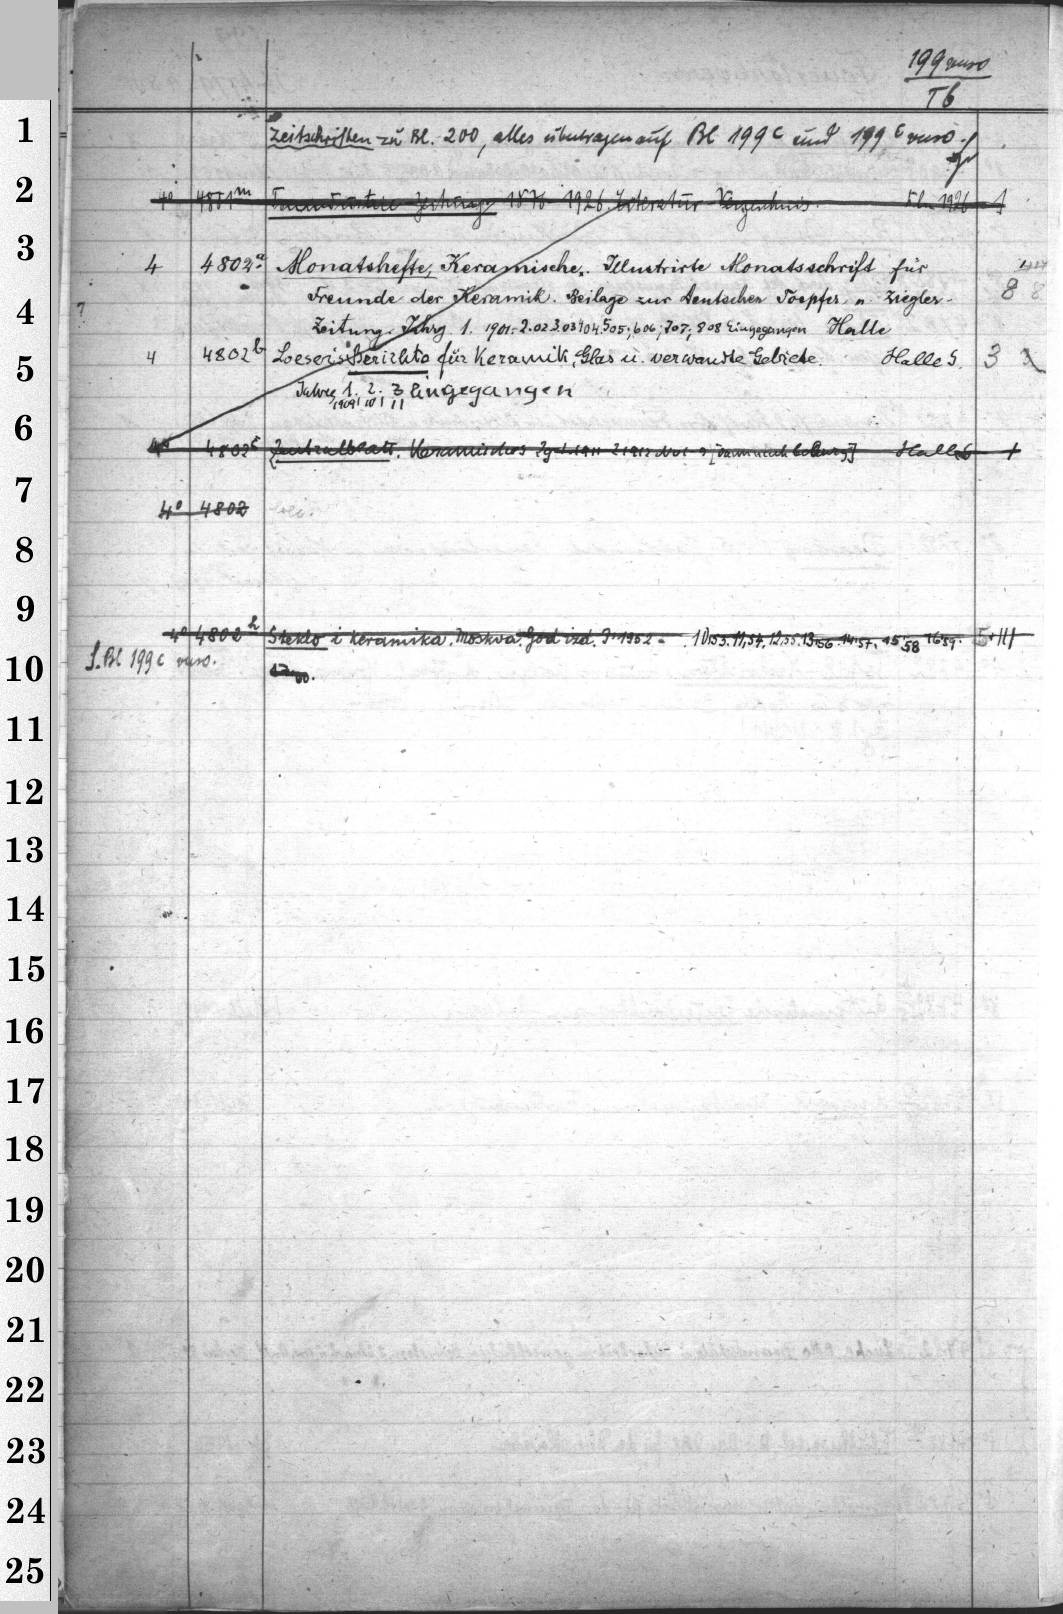 199 verso
Tb
1
Zeitschriften zu Bl. 200, alles übertragen auf Bl 199c und 199c verso.
2
4° 4801m Tonindustrie Zeitung 1876-1926 Literatur-Verzeichnis. 1926 1
3
4 4802a Monatshefte, Keramische. Illustrirte Monatsschrift für
? Freunde der Keramik. Beilage zur Deutschen Toepfer u. Ziegler- 8 8
4
Zeitung. Jahrg 1. 1901. 2.02 3.03 4 04. 5 05; 6 06; 7 07; 8 08 Eingegangen Halle
5
4 4802b Loeser's Berichte für Keramik, Glas u. verwandte Gebiete. Halle S. 3
Jahrg 1. 2. 3 Eingegangen
1909 10 11
6
4° 4802c Zentralblatt. Keramisches Halle S 1
7
4° 4802
8
9
4° 4802h Steklo i keramika. Moskva. God izd. 9.1952 - 10,53. 11,54. 12,55. 13,56. 14,57. 15,58 16,59. 5+III
10
S. Bl 199c verso. 17,60.
11
12
13
14
15
16
17
18
19
20
21
22
23
24
25